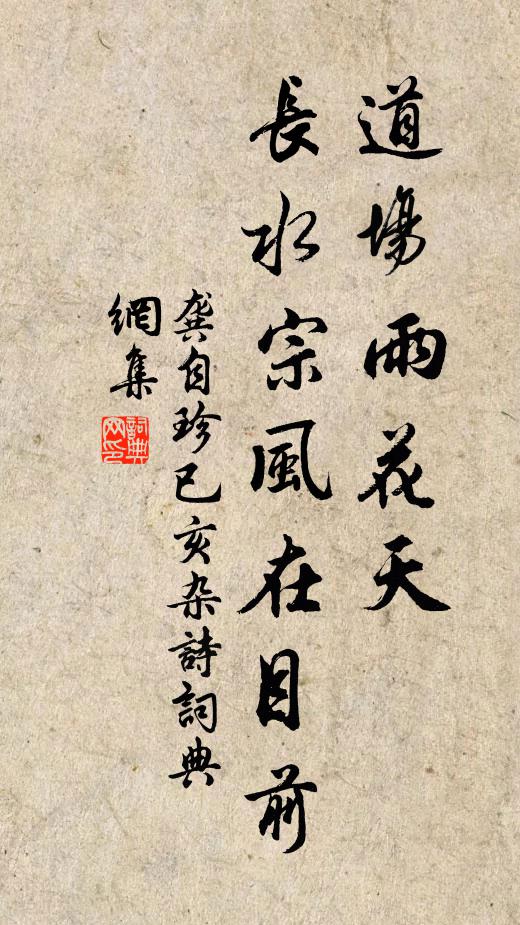 道場雨花天
長水宗風在目前
龔自珍己亥杂詩詞典
網集
詞典网印